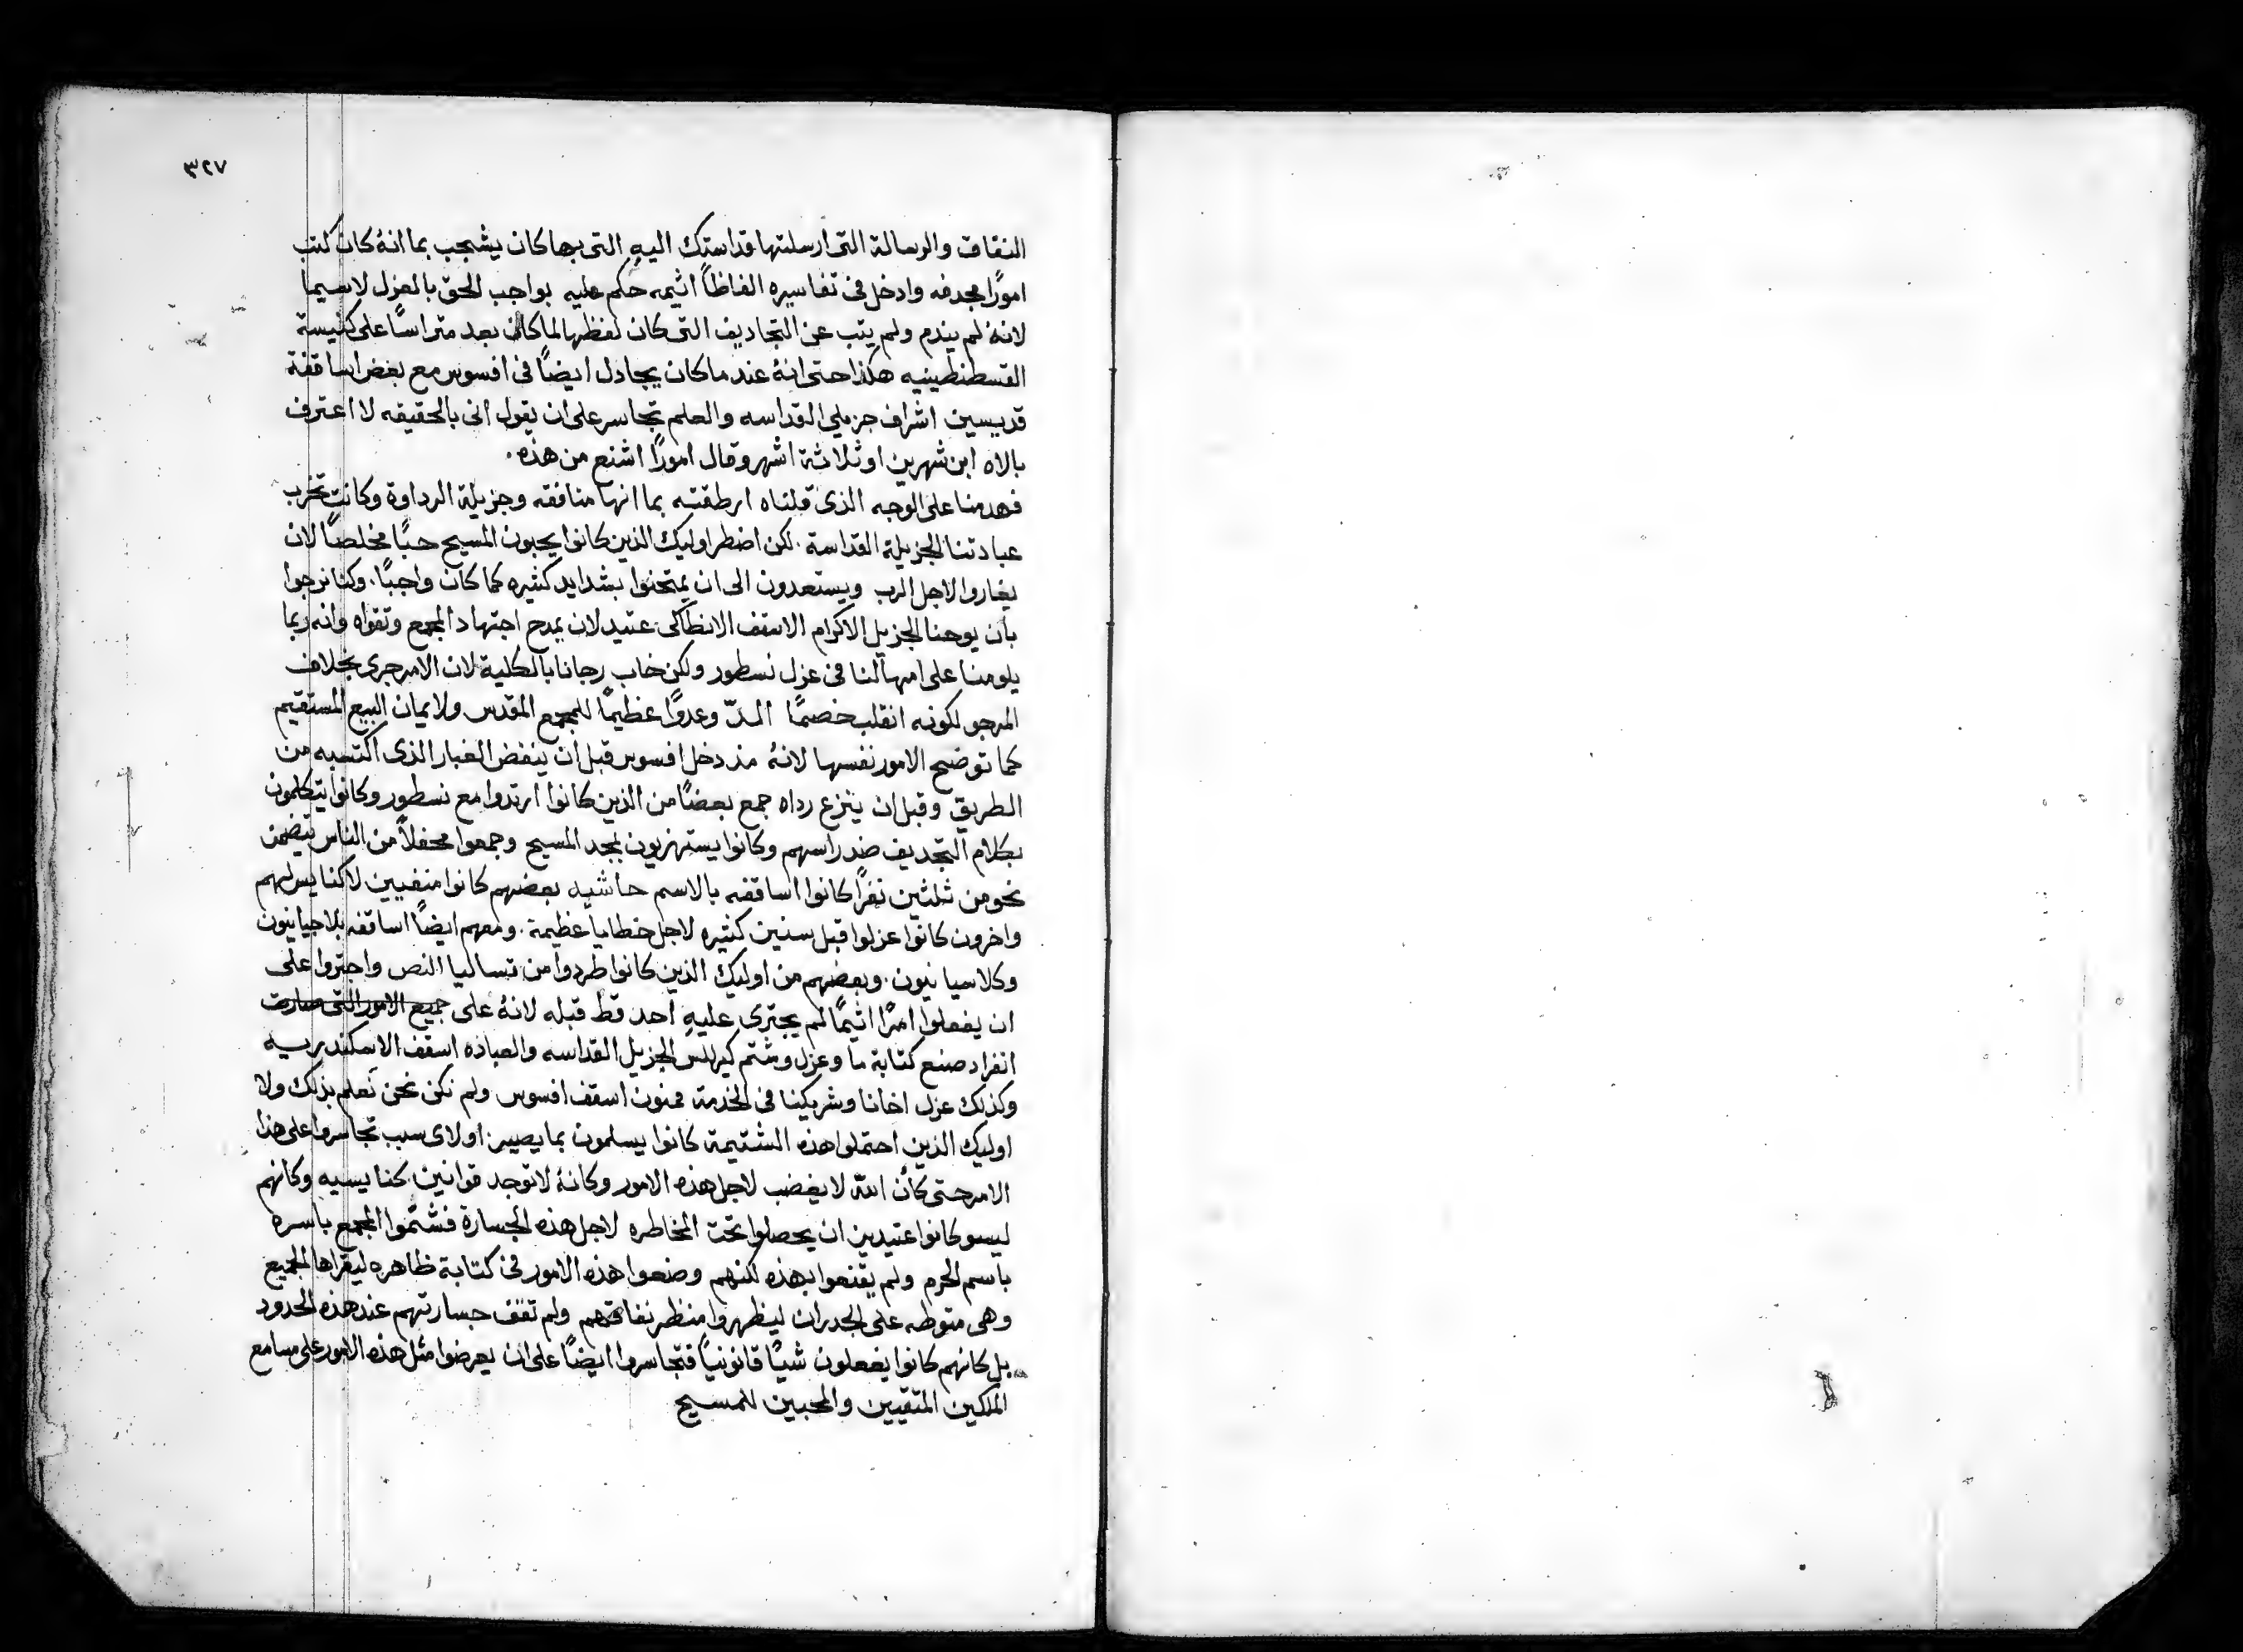 ٣٢٧
النفاق والرسالة التى ارسلتها قداستك اليهِ التى بها كان يشجب بما انهُ كان كتب
امورًا مجدفه وادخل فى تفاسيره الفاظًا اثيمه حكم عليه بواجب الحق بالعزل لاسيما
لانهُ لم يندم ولم يتب عن التجاديف التى كان لفظها لما كان بعد متراسًا على كنيسة
القسطنطينيه هكذا حتى انهُ عندما كان يجادل ايضًا فى افسوس مع بعض اساقفة
قديسين اشراف جزيلى القداسه والعلم تجاسر على ان يقول انى بالحقيقه لا اعترف
بالاه ابن شهرين او ثلاثة اشهر وقال امورًا اشنع من هذه .
فهدمنا على الوجه الذى قلناه ارطقته بما انها منافقه وجزيلة الرداوة وكانت تخرب
عبادتنا الجزيلة القداسة . لكن اضطر اوليك الذين كانوا يحبون المسيح حبًا مخلصًا لان
يغاروا لاجل الرب ويستعدون الى ان يمتحنوا بشدايد كثيره كما كان واجبًا . وكنا نرجوا
بان يوحنا الجزيل الاكرام الاسقف الانطاكى عتيد لان يمدح اجتهاد المجمع وتقواه وانه ربما
يلومنا على امهالنا فى عزل نسطور ولكن خاب رجانا بالكلية لان الامر جرى بخلاف
المرجو لكونه انقلب خصمًا الدّ وعدوًا عظيمًا للمجمع المقدس ولايمان البيع المستقيم
كما توضح الامور نفسها لانهُ مذ دخل افسوس قبل ان ينفض الغبار الذى اكتسبه من
الطريق وقبل ان ينزع رداه جمع بعضًا من الذين كانوا ارتدوا مع نسطور وكانوا يتكلمون
بكلام التجديف ضد راسهم وكانوا يستهزيون بمجد المسيح وجمعوا محفلاً من الناس يتضمن
نحو من ثلثين نفرًا كانوا اساقفه بالاسم حاشيه بعضهم كانوا منفيين لا كنايس لهم
واخرون كانوا عزلوا قبل سنين كثيره لاجل خطايا عظيمة . ومعهم ايضًا اساقفه بلاجيانيون
وكلاسيانيون . وبعضهم من اوليك الذين كانوا طردوا من تساليا النص واجتروا على
ان يفعلوا امرًا اثيمًا لم يجترى عليهِ احد قط قبله لانهُ على جميع الامور التى صارت
انفراد صنع كتابة ما وعزل وشتم كيرللس الجزيل القداسه والعباده اسقف الاسكندريه
وكذلك عزل اخانا وشريكينا فى الخدمة ممنون اسقف افسوس ولم نكن نحن نعلم بذلك ولا
اوليك الذين احتملوا هذه الشتيمة كانوا يسلمون بما يصير . او لاى سبب تجاسروا على هذا
الامر حتى كأن الله لا يغضب لاجل هذه الامور وكانهُ لا توجد قوانين كنايسيه وكانهم
ليسو كانوا عتيدين ان يحصلوا تحت المخاطره لاجل هذه الجسارة فشتموا المجمع باسره
باسم الحرم ولم يقنعوا بهذه لكنهم وضعوا هذه الامور فى كتابة ظاهره ليقراها الجميع
وهى متوطه على الجدران ليظهروا منظر نفاقهم ولم تقف جسارتهم عند هذه الحدود
بل كانهم كانوا يفعلون شيًا قانونيًا فتجاسروا ايضًا على ان يعرضوا مثل هذه الامور على مسامع
الملكين المتقيين والمحبين للمسيح